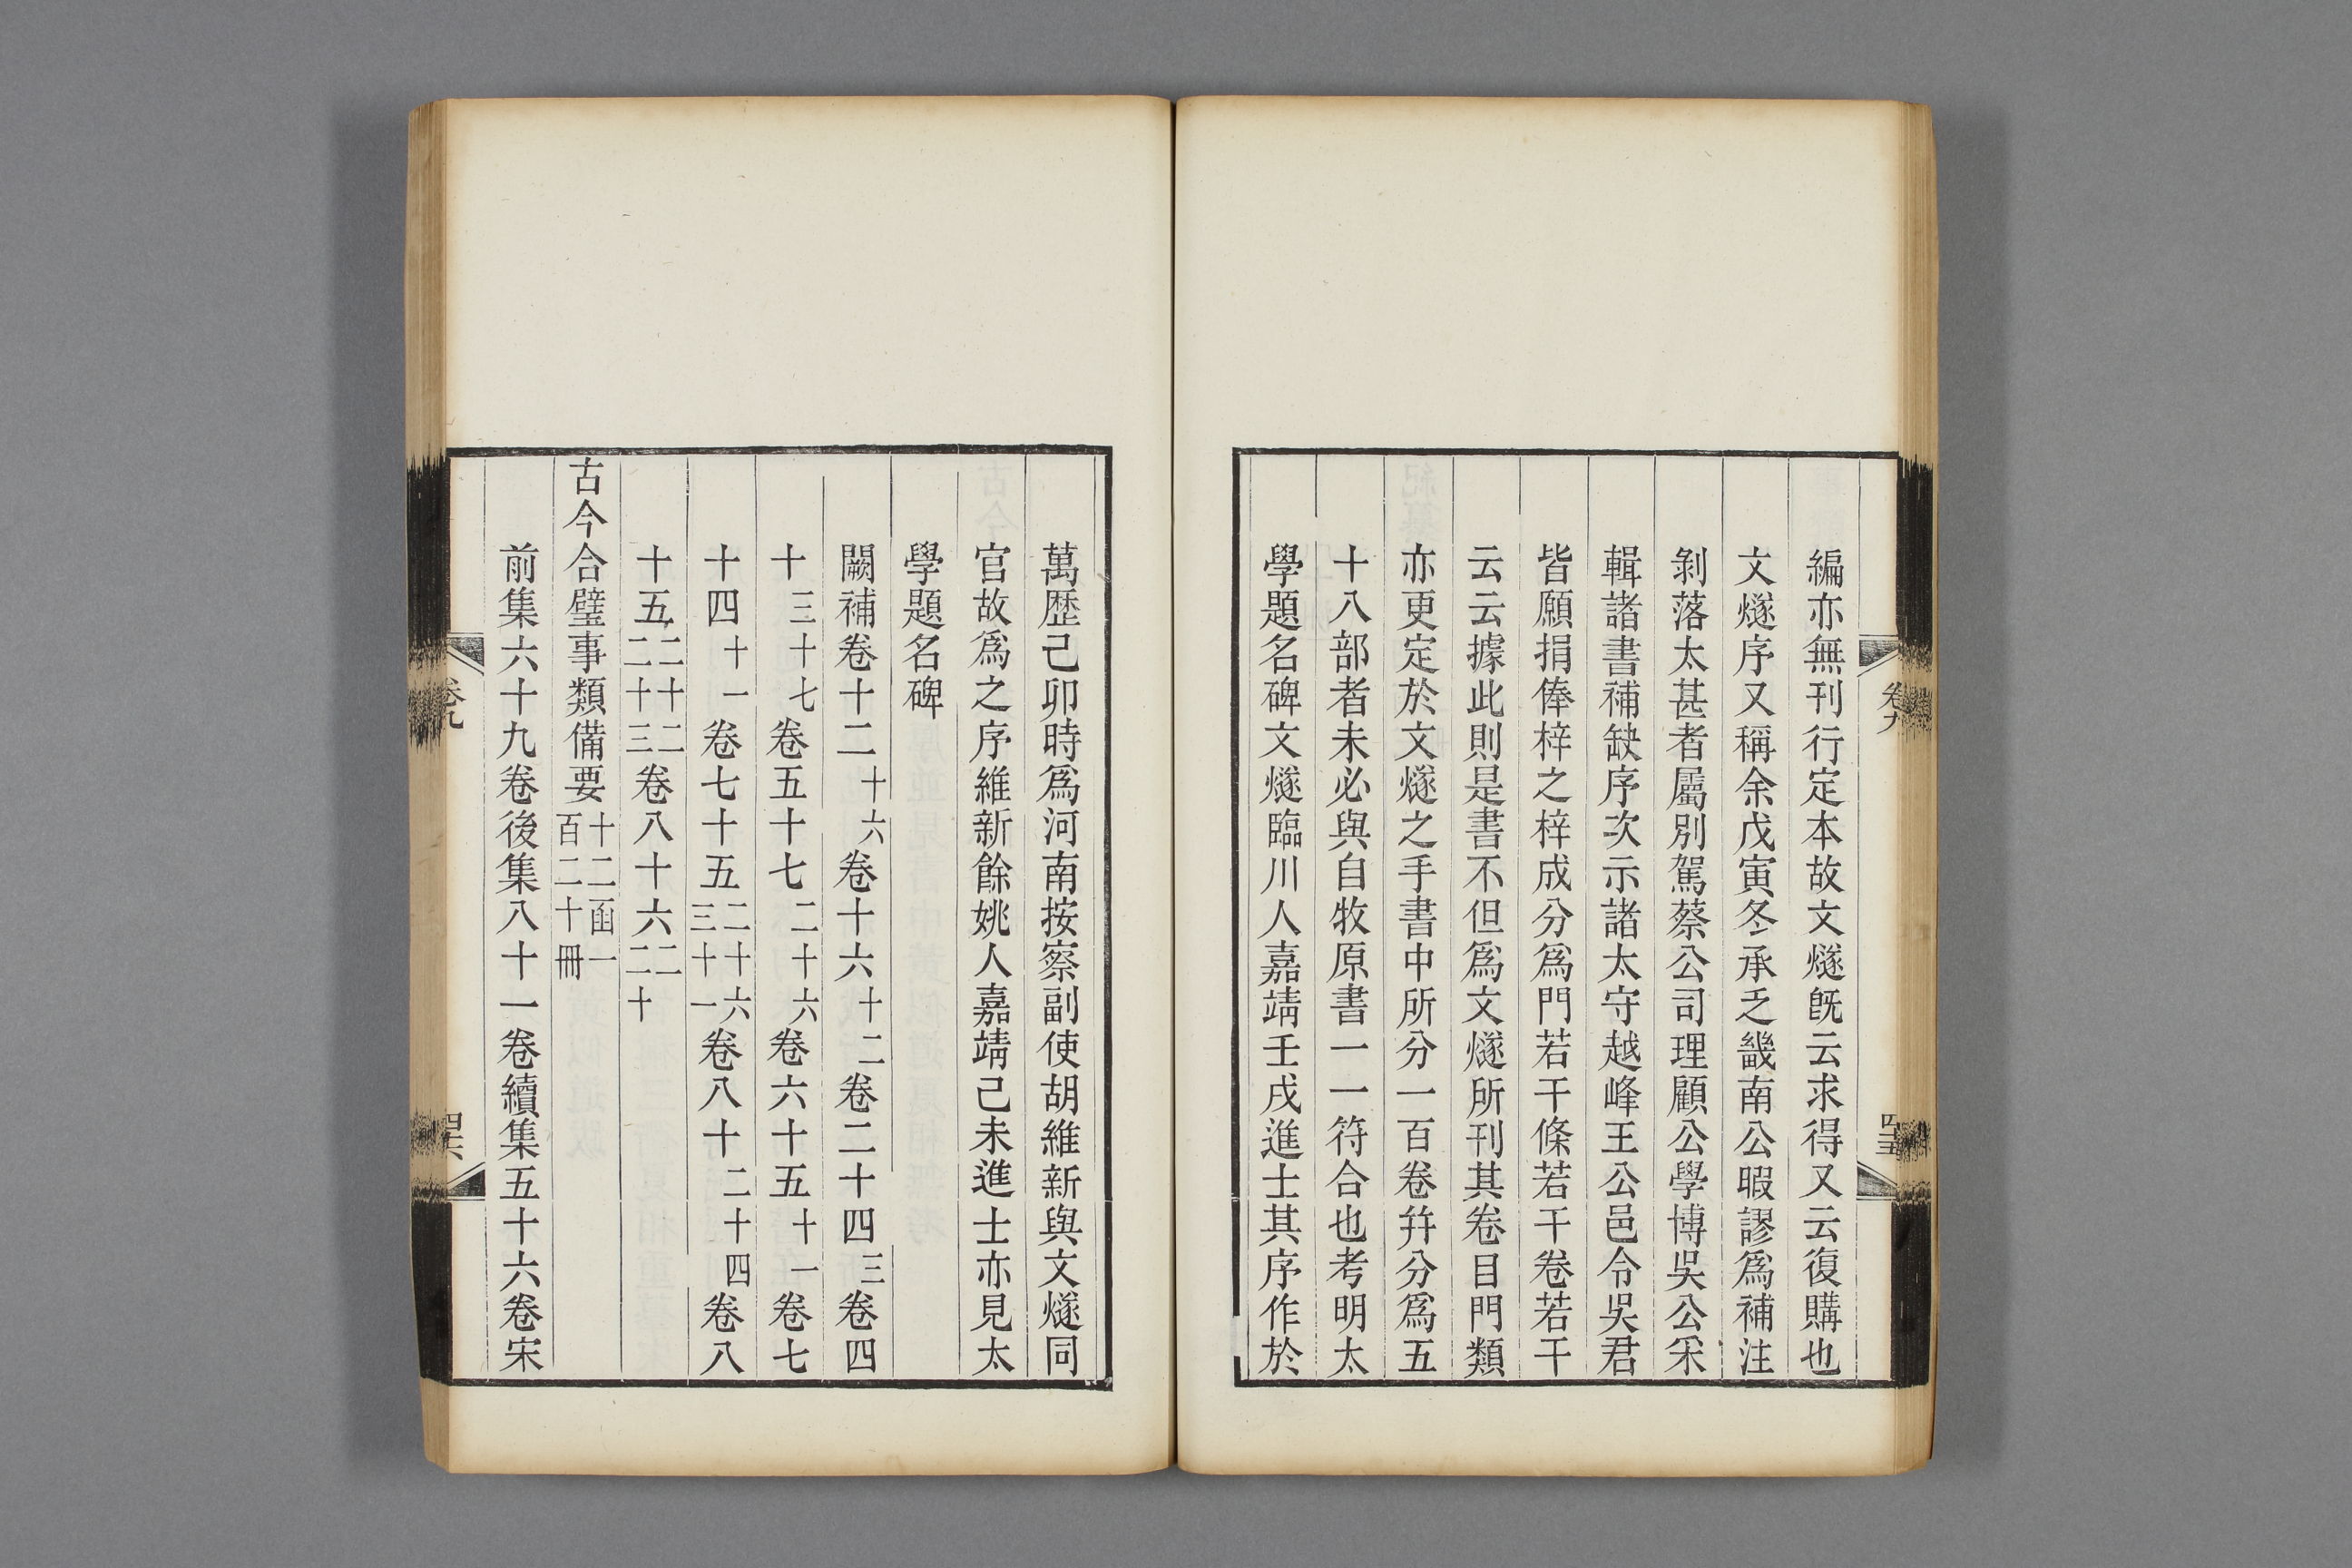 編亦無刊行定本故文燧旣云求得又云復購也
文燧序又稱余戊寅冬承乏畿南公暇謬爲補注
剝落太甚者屬別駕蔡公司理顧公學博吳公釆
輯諸書補缺序次示諸太守越峰王公邑令吳君
皆願捐俸梓之梓成分爲門若干條若干卷若干
云云據此則是書不但爲文燧所刊其卷目門類
亦更定於文燧之手書中所分一百卷幷分爲五
十八部者未必與自牧原書一一符合也考明太
學題名碑文燧臨川人嘉靖壬戌進士其序作於
卷九
四十五
萬歷己卯時爲河南按察副使胡維新與文燧同
官故爲之序維新餘姚人嘉靖己未進士亦見太
學題名碑
闕補卷十二十六卷十六十二卷二十四三卷四
十三十七卷五十七二十六卷六十五十一卷七
十四十一卷七十五二十六三十一卷八十二十四卷八
十五二十二二十三卷八十六二二十
古今合璧事類備要十二函一百二十冊
前集六十九卷後集八十一卷續集五十六卷宋
卷九
四十六